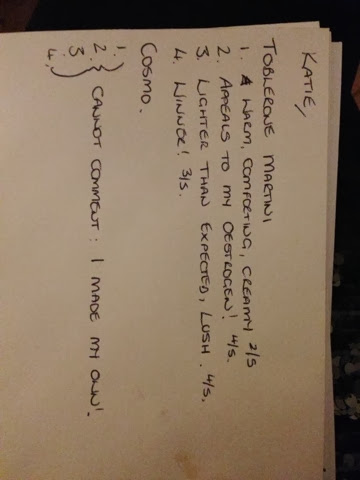 KATIE,
TOBLERONE MARTINI
1. WARM, COMFORTING, CREAMY 2/5
2. APPEALS TO MY OESTROGEN! 4/5.
3. LIGHTER THAN EXPECTED, LUSH. 4/5.
4. WINNER! 3/5.
COSMO.
1.
2.
3
4.
CANNOT COMMENT: I MADE MY OWN!